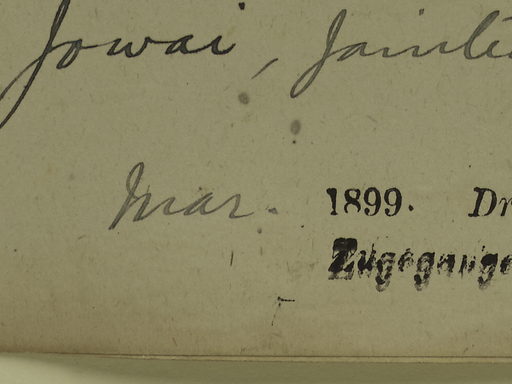 Jowai, Jainti
Mar. 1899. Dr
Zugegange